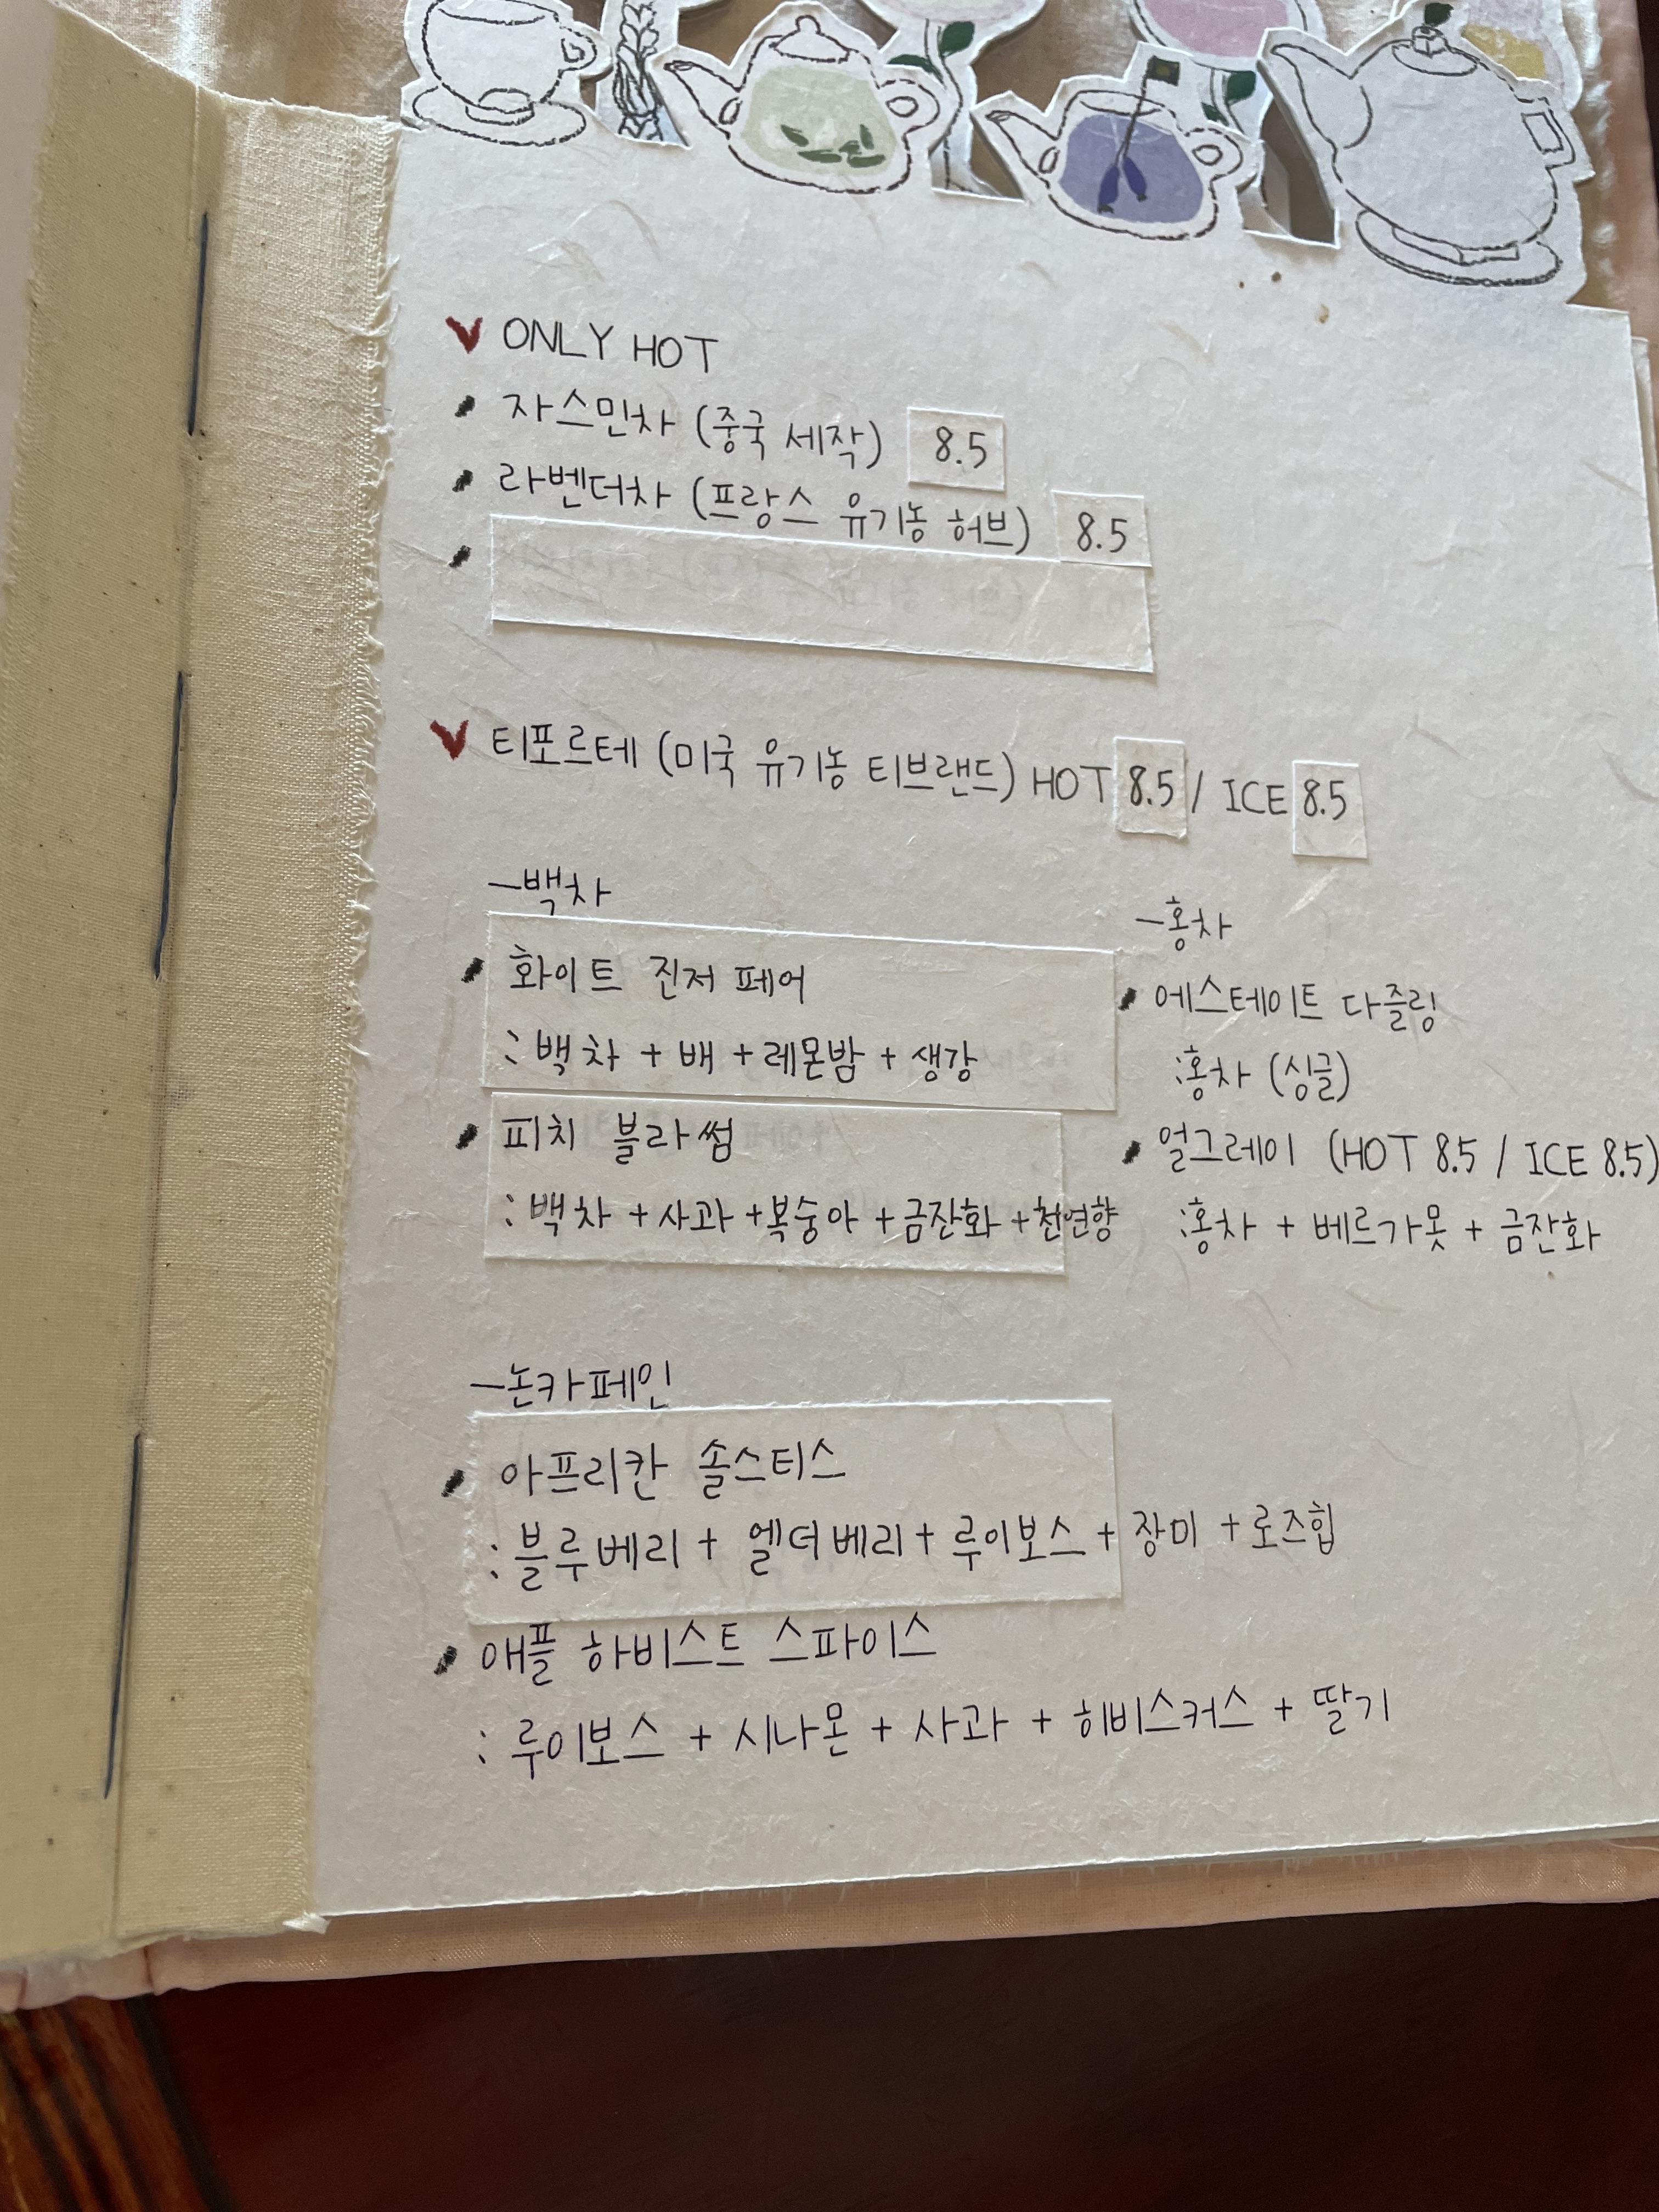 ONLY HOT
자스민차 (중국 세작) 8.5
라벤더차 (프랑스 유기농 허브) 8.5
티포르테 (미국 유기농 티브랜드) HOT 8.5 / ICE 8.5
-백차
화이트 진저 페어
: 백차 + 배 + 레몬밤 + 생강
피치 블라썸
: 백차 + 사과 + 복숭아 + 금잔화 + 천연향
-홍차
에스테이트 다즐링
: 홍차 (싱글)
얼그레이 (HOT 8.5 / ICE 8.5)
: 홍차 + 베르가못 + 금잔화
-논카페인
아프리칸 솔스티스
: 블루베리 + 엘더베리 + 루이보스 + 장미 + 로즈힙
애플 하비스트 스파이스
: 루이보스 + 시나몬 + 사과 + 히비스커스 + 딸기